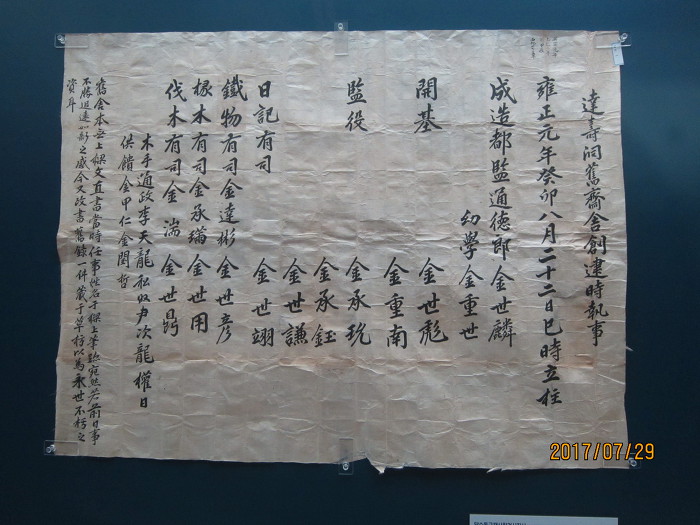 達壽洞舊齋舍創建時執事
雍正元年癸卯八月二十二日巳時立柱
成造都監通德郎金世麟
幼學金重世
開基 金世彪
金重南
監役 金承玧
金承鈺
金世謙
日記有司 金世翊
鐵物有司金達彬 金世彦
椽木有司金承瑞 金世用
伐木有司金湍 金世昌
木手通政李天龍私奴尹次龍權日
供饋金甲仁金閏哲
舊舍本無上樑文直書當時任事姓名于樑上筆跡宛然若前日事
不勝追遠如新之感今又改書舊錄一件藏于竿栟以為永世不朽之
資耳
2017/07/29